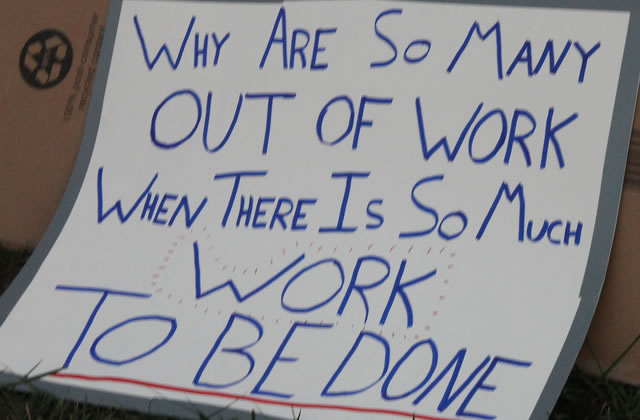 WHY ARE SO MANY
OUT OF WORK
WHEN THERE IS SO MUCH
WORK
TO BE DONE